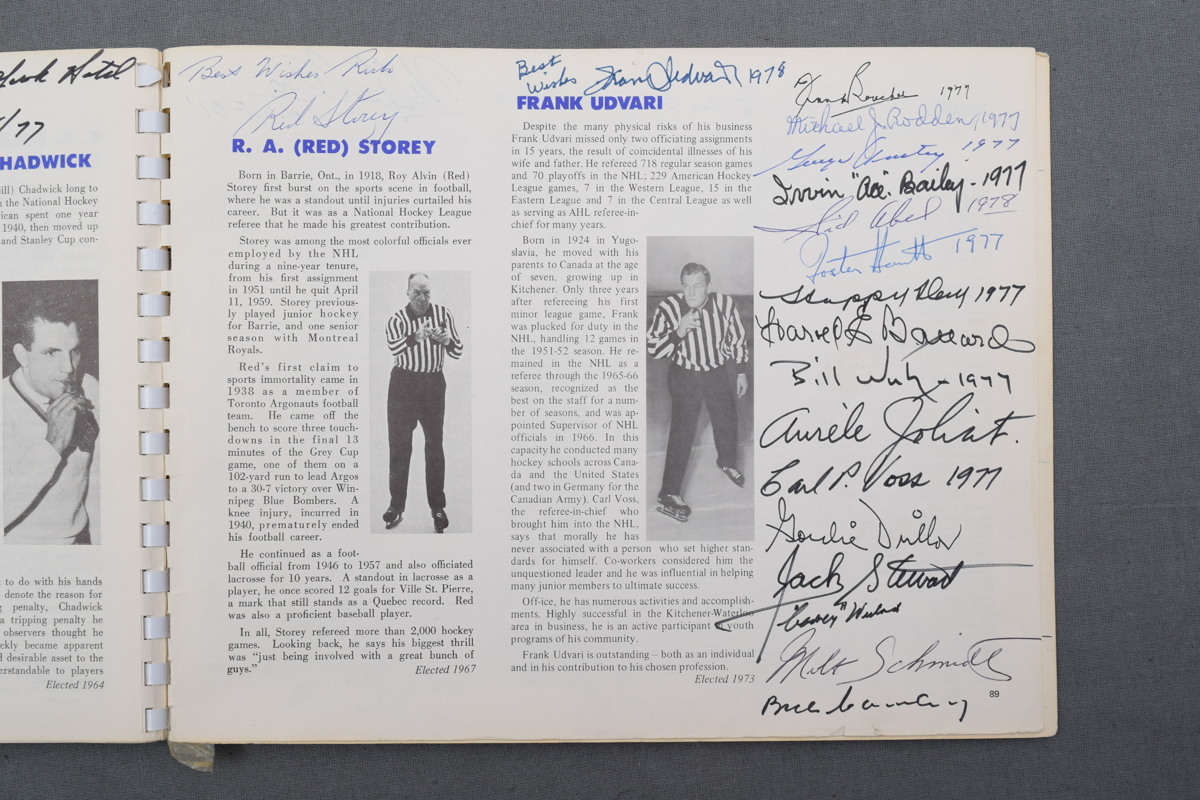 Hotel
/77
HADWICK
ill) Chadwick long to
n the National Hockey
ican spent one year
1940, then moved up
and Stanley Cup con-
to do with his hands
denote the reason for
penalty, Chadwick
a tripping penalty he
observers thought he
ckly became apparent
d desirable asset to the
erstandable to players
Elected 1964
Best Wishes Rich
Red Storey
R. A. (RED) STOREY
Born in Barrie, Ont., in 1918, Roy Alvin (Red)
Storey first burst on the sports scene in football,
where he was a standout until injuries curtailed his
career. But it was as a National Hockey League
referee that he made his greatest contribution.
Storey was among the most colorful officials ever
employed by the NHL
during a nine-year tenure,
from his first assignment
in 1951 until he quit April
11, 1959. Storey previous-
ly played junior hockey
for Barrie, and one senior
season with Montreal
Royals.
Red's first claim to
sports immortality came in
1938 as a member of
Toronto Argonauts football
team. He came off the
bench to score three touch-
downs in the final 13
minutes of the Grey Cup
game, one of them on a
102-yard run to lead Argos
to a 30-7 victory over Win-
nipeg Blue Bombers. A
knee injury, incurred in
1940, prematurely ended
his football career.
He continued as a foot-
ball official from 1946 to 1957 and also officiated
lacrosse for 10 years. A standout in lacrosse as a
player, he once scored 12 goals for Ville St. Pierre,
a mark that still stands as a Quebec record. Red
was also a proficient baseball player.
In all, Storey refereed more than 2,000 hockey
games. Looking back, he says his biggest thrill
was "just being involved with a great bunch of
guys."
Elected 1967
Best
Wishes Frank Udvari 1978
FRANK UDVARI
Despite the many physical risks of his business
Frank Udvari missed only two officiating assignments
in 15 years, the result of coincidental illnesses of his
wife and father. He refereed 718 regular season games
and 70 playoffs in the NHL; 229 American Hockey
League games, 7 in the Western League, 15 in the
Eastern League and 7 in the Central League as well
as serving as AHL referee-in-
chief for many years.
Born in 1924 in Yugo-
slavia, he moved with his
parents to Canada at the age
of seven, growing up in
Kitchener. Only three years
after refereeing his first
minor league game, Frank
was plucked for duty in the
NHL, handling 12 games in
the 1951-52 season. He re-
mained in the NHL as a
referee through the 1965-66
season, recognized as the
best on the staff for a num-
ber of seasons, and was ap-
pointed Supervisor of NHL
officials in 1966. In this
capacity he conducted many
hockey schools across Cana-
da and the United States
(and two in Germany for the
Canadian Army). Carl Voss,
the referee-in-chief who
brought him into the NHL,
says that morally he has
never associated with a person who set higher stan-
dards for himself. Co-workers considered him the
unquestioned leader and he was influential in helping
many junior members to ultimate success.
Off-ice, he has numerous activities and accomplish-
ments. Highly successful in the Kitchener-Waterloo
area in business, he is an active participant in youth
programs of his community.
Frank Udvari is outstanding – both as an individual
and in his contribution to his chosen profession.
Elected 1973
Frank Boucher 1977
Michael J. Rodden, 1977
1977
Irvin "Ace" Bailey - 1977
Sid Abel 1978
Foster Hewitt 1977
Happy Day 1977
Harold E Ballard
Bill Wirtz - 1977
Aurèle Joliat.
Carl P. Voss 1977
Gordie Drillon
Jack Stewart
"Cooney" Weiland
Milt Schmidt
89